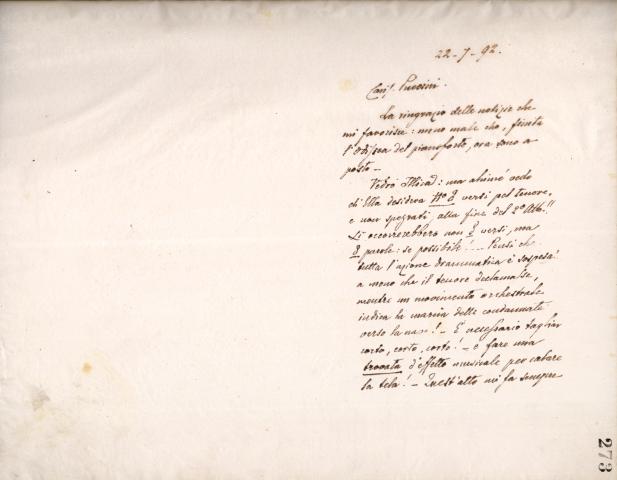 22-7-92.
Cariſ. Puccini.
La ringrazio delle notizie che
mi favorisce: meno male che, finita
l'Odissea del pianoforte, ora sono a
posto -
Vedrò Illica: ma ahimé vedo
ch'Ella desidera 8 versi pel tenore,
e non spezzati alla fine del 2º Atto!!
Li occorrerebbero non 8 versi, ma
8 parole: se possibile! - Pensi che
tutta l'azione drammatica è sospesa!
a meno che il tenore declamasse,
mentre un movimento orchestrale
indica la marcia delle condannate
verso la nave! - È necessario tagliar
corto, corto, corto! - e fare una
trovata d'effetto musicale per calare
la tela! - Quest'atto mi fa sempre
273